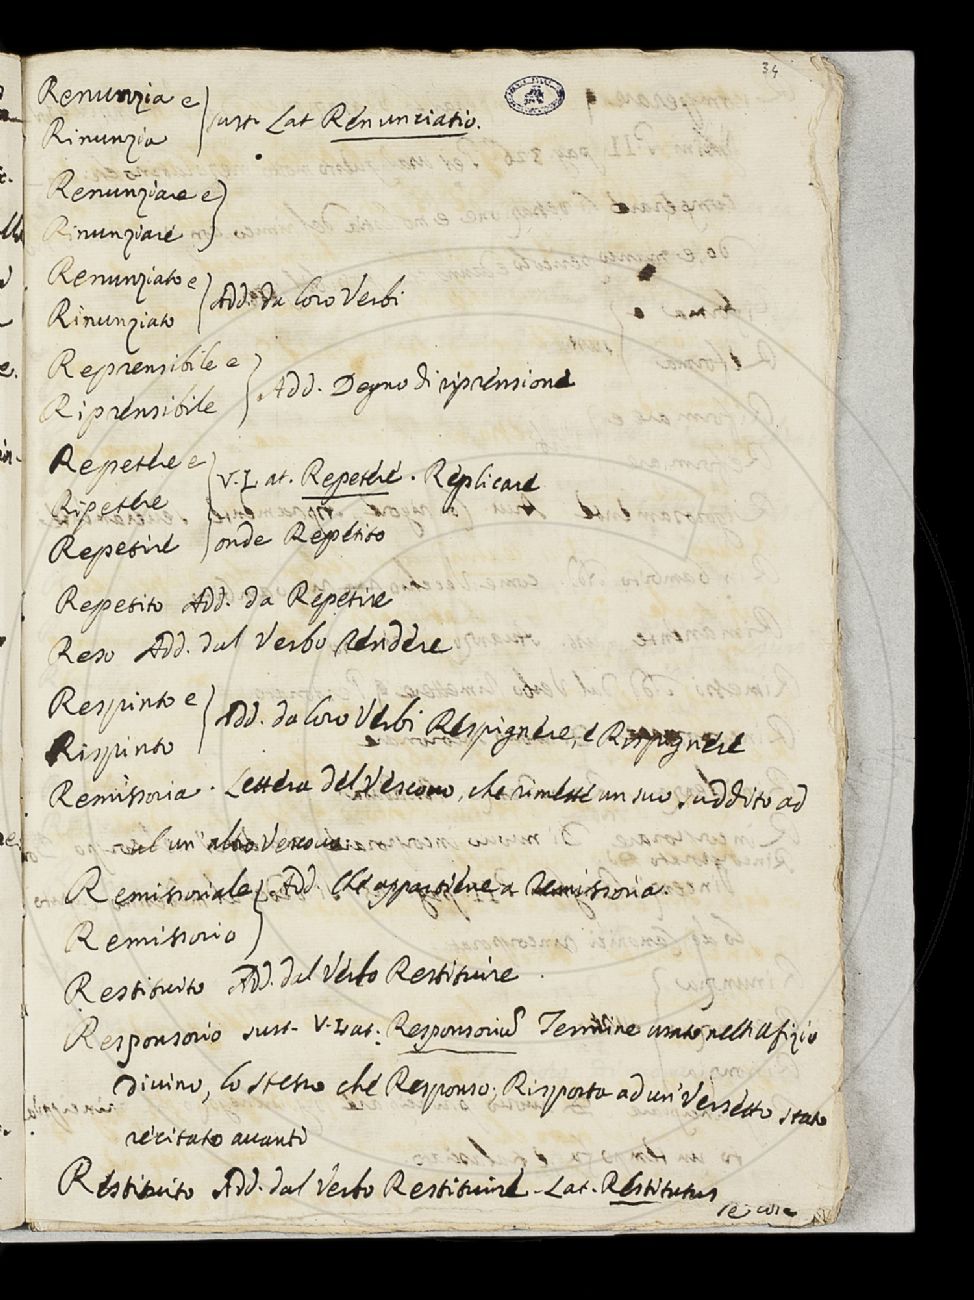 34
Renunzia e
Rinunzia } sust. Lat. Renunziatio.
Renunziare e
Rinunziare }
Renunziato e
Rinunziato } Add. da loro Verbi
Reprensibile e
Riprensibile } Add. Degno di riprensione
Repetere e
Ripetere
Repetire } V. Lat. Repetere. Replicare
onde Repetito
Repetito Add. da Repetire
Reso Add. dal Verbo rendere
Respinto e
Rispinto } Add. da loro Verbi Respignere, e Rispignere
Remissoria. Lettera del Vescovo, che rimette un suo suddito ad
un altro Vescovo
Remissoriale
Remissorio } Add. che appartiene a remissoria.
Restituito Add. dal Verbo Restituire.
Responsorio sust. V. Lat. Responsoriū Termine usato nell'Ufizio
Divino, lo stesso che Responso; Risposta ad un Versetto stato
recitato avanti
Restituito Add. dal Verbo Restituire. Lat. Restitutus